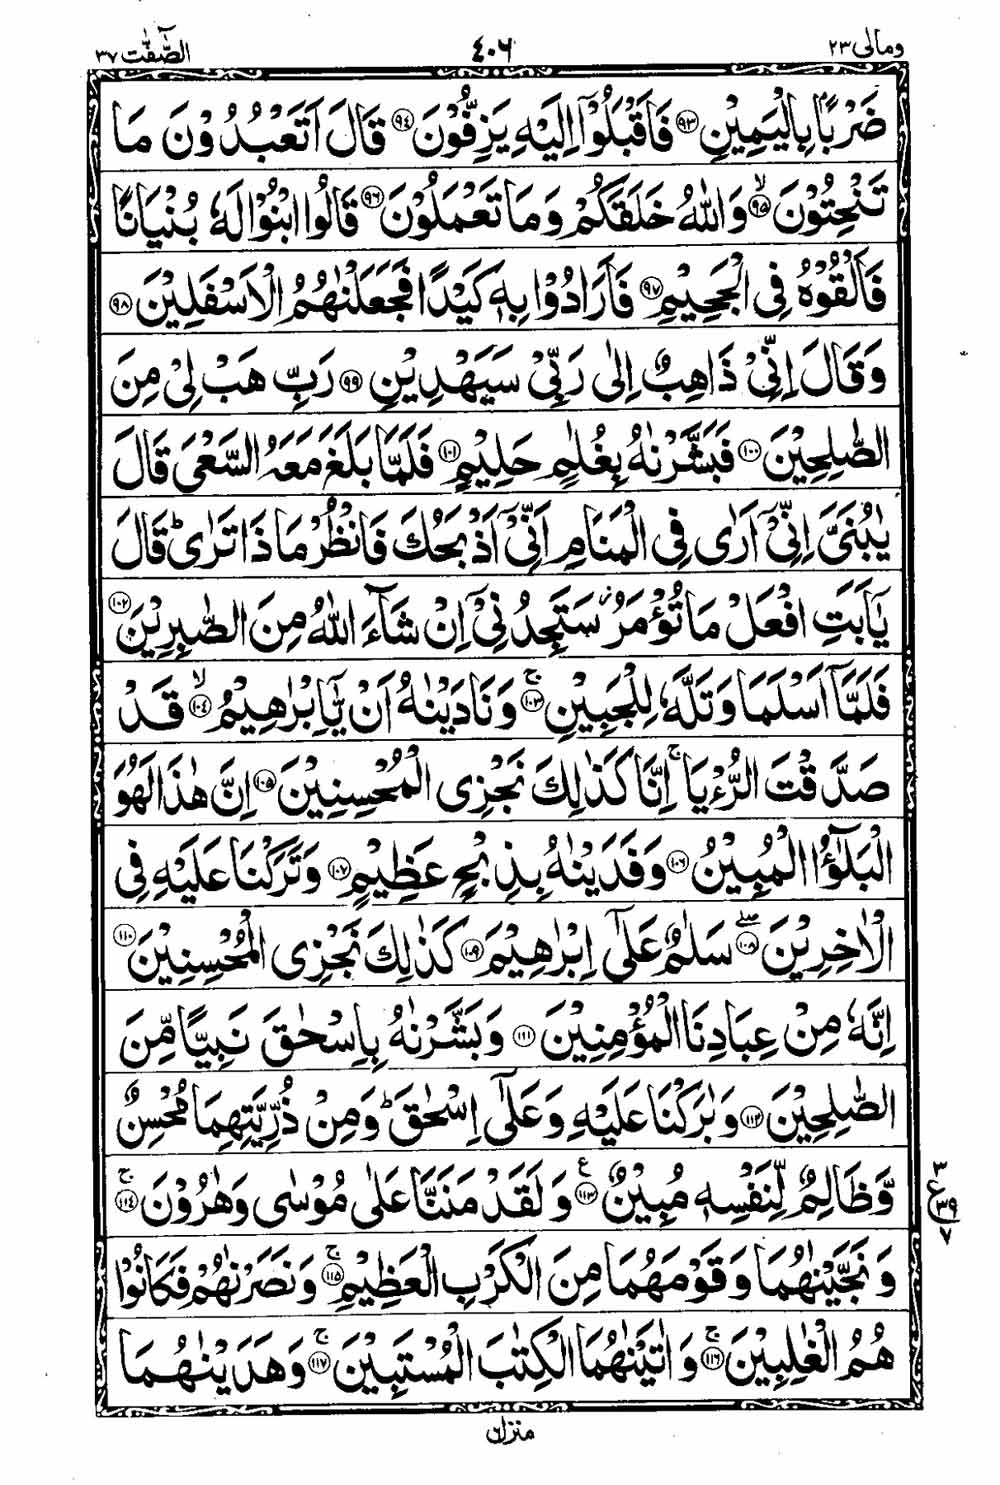 ومالی ٢٣
٤٠٦
الصّٰٓفّٰت ٣٧
ضَرْبًۢا بِالْيَمِيْنِ ﴿٩٣﴾ فَاَقْبَلُوْۤا اِلَيْهِ يَزِفُّوْنَ ﴿٩٤﴾ قَالَ اَتَعْبُدُوْنَ مَا
تَنْحِتُوْنَ ﴿٩٥﴾ۙ وَاللّٰهُ خَلَقَكُمْ وَمَا تَعْمَلُوْنَ ﴿٩٦﴾ قَالُوا ابْنُوْا لَهٗ بُنْيَانًا
فَاَلْقُوْهُ فِى الْجَحِيْمِ ﴿٩٧﴾ فَاَرَادُوْا بِهٖ كَيْدًا فَجَعَلْنٰهُمُ الْاَسْفَلِيْنَ ﴿٩٨﴾
وَقَالَ اِنِّىْ ذَاهِبٌ اِلٰى رَبِّىْ سَيَهْدِيْنِ ﴿٩٩﴾ رَبِّ هَبْ لِىْ مِنَ
الصّٰلِحِيْنَ ﴿١٠٠﴾ فَبَشَّرْنٰهُ بِغُلٰمٍ حَلِيْمٍ ﴿١٠١﴾ فَلَمَّا بَلَغَ مَعَهُ السَّعْىَ قَالَ
يٰبُنَىَّ اِنِّىْۤ اَرٰى فِى الْمَنَامِ اَنِّىْۤ اَذْبَحُكَ فَانْظُرْ مَاذَا تَرٰىؕ قَالَ
يٰۤاَبَتِ افْعَلْ مَا تُؤْمَرُؗ سَتَجِدُنِىْۤ اِنْ شَآءَ اللّٰهُ مِنَ الصّٰبِرِيْنَ ﴿١٠٢﴾
فَلَمَّاۤ اَسْلَمَا وَتَلَّهٗ لِلْجَبِيْنِ ﴿١٠٣﴾ۚ وَنَادَيْنٰهُ اَنْ يّٰۤاِبْرٰهِيْمُ ﴿١٠٤﴾ۙ قَدْ
صَدَّقْتَ الرُّءْيَاۚ اِنَّا كَذٰلِكَ نَجْزِى الْمُحْسِنِيْنَ ﴿١٠٥﴾ اِنَّ هٰذَا لَهُوَ
الْبَلٰٓؤُا الْمُبِيْنُ ﴿١٠٦﴾ وَفَدَيْنٰهُ بِذِبْحٍ عَظِيْمٍ ﴿١٠٧﴾ وَتَرَكْنَا عَلَيْهِ فِى
الْاٰخِرِيْنَ ﴿١٠٨﴾ۖ سَلٰمٌ عَلٰٓى اِبْرٰهِيْمَ ﴿١٠٩﴾ كَذٰلِكَ نَجْزِى الْمُحْسِنِيْنَ ﴿١١٠﴾
اِنَّهٗ مِنْ عِبَادِنَا الْمُؤْمِنِيْنَ ﴿١١١﴾ وَبَشَّرْنٰهُ بِاِسْحٰقَ نَبِيًّا مِّنَ
الصّٰلِحِيْنَ ﴿١١٢﴾ وَبٰرَكْنَا عَلَيْهِ وَعَلٰٓى اِسْحٰقَؕ وَمِنْ ذُرِّيَّتِهِمَا مُحْسِنٌ
وَّظَالِمٌ لِّنَفْسِهٖ مُبِيْنٌ ﴿١١٣﴾ع وَلَقَدْ مَنَنَّا عَلٰى مُوْسٰى وَهٰرُوْنَ ﴿١١٤﴾ۚ
٣
ع ٣٩
٧
وَنَجَّيْنٰهُمَا وَقَوْمَهُمَا مِنَ الْكَرْبِ الْعَظِيْمِ ﴿١١٥﴾ۚ وَنَصَرْنٰهُمْ فَكَانُوْا
هُمُ الْغٰلِبِيْنَ ﴿١١٦﴾ۚ وَاٰتَيْنٰهُمَا الْكِتٰبَ الْمُسْتَبِيْنَ ﴿١١٧﴾ۚ وَهَدَيْنٰهُمَا
منزل ٦